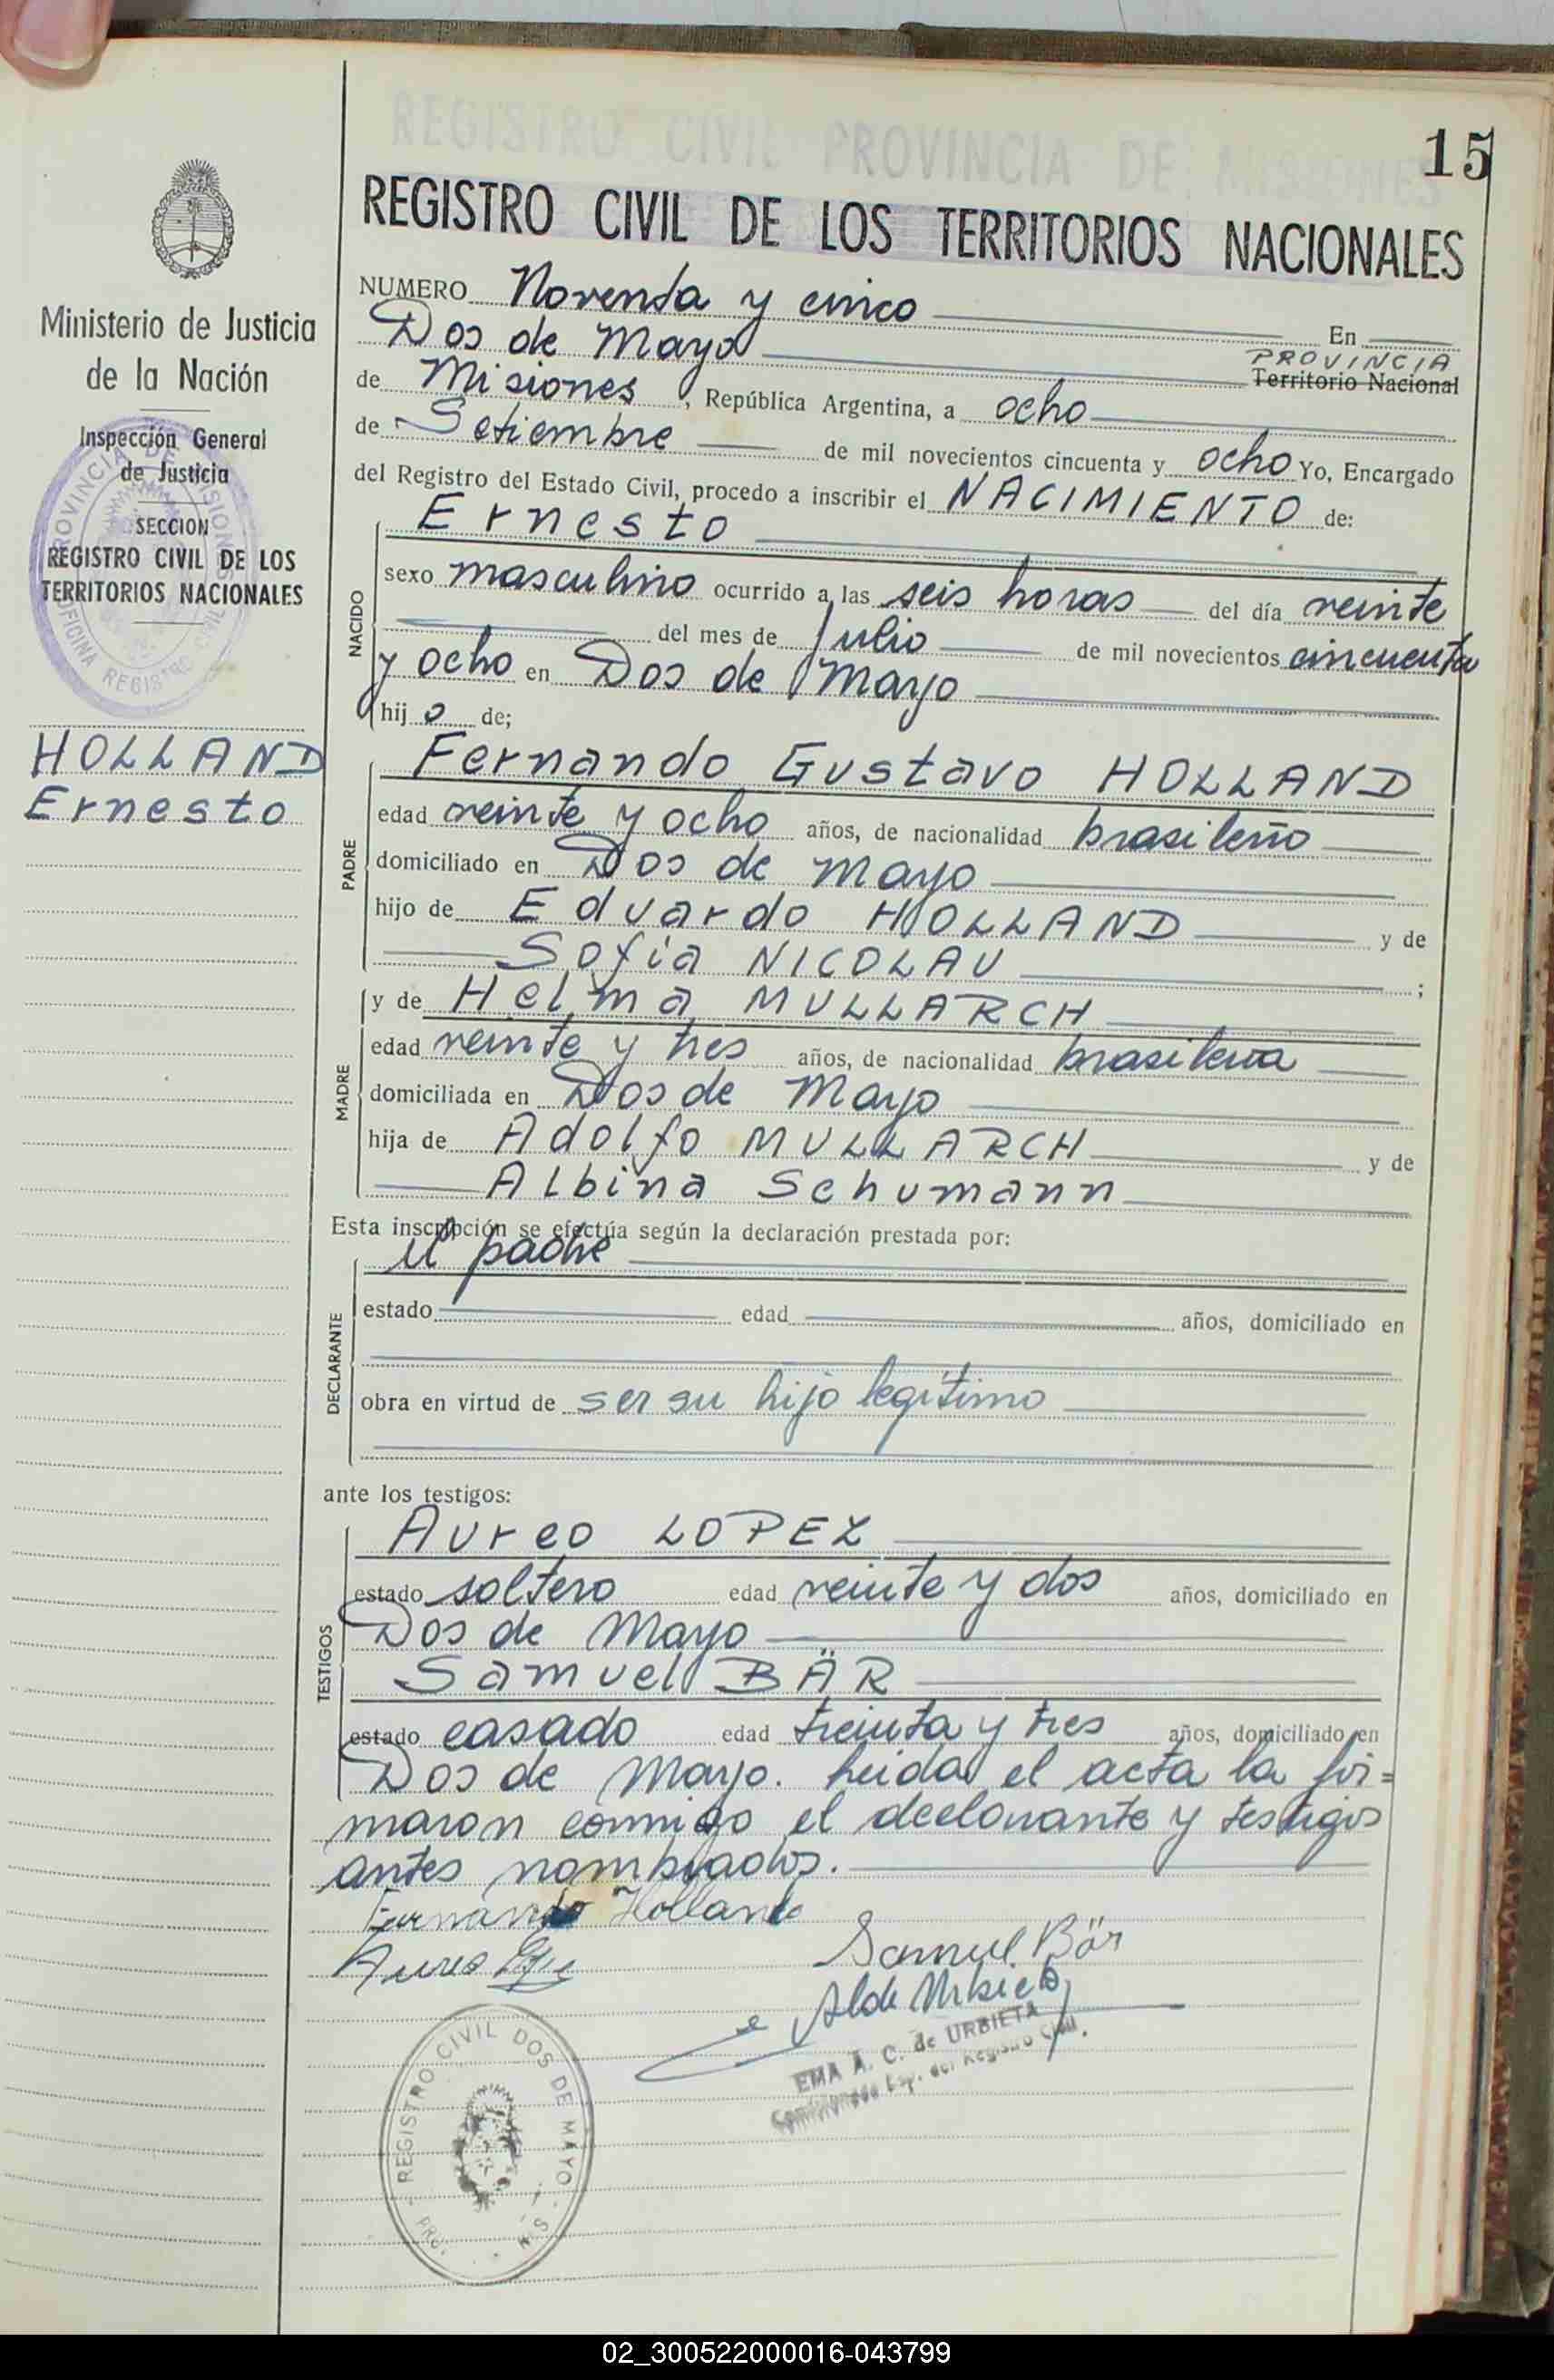 15
REGISTRO CIVIL PROVINCIA DE MISIONES
REGISTRO CIVIL DE LOS TERRITORIOS NACIONALES
Ministerio de Justicia
de la Nación
Inspección General
de Justicia
SECCION
REGISTRO CIVIL DE LOS
TERRITORIOS NACIONALES
PROVINCIA DE MISIONES
OFICINA REGISTRO CIVIL
HOLLAND
Ernesto
NUMERO Noventa y cinco En
Dos de Mayo PROVINCIA
Territorio Nacional
de Misiones, República Argentina, a ocho
de Setiembre de mil novecientos cincuenta y ocho Yo, Encargado
del Registro del Estado Civil, procedo a inscribir el NACIMIENTO de:
NACIDO
Ernesto
sexo masculino ocurrido a las seis horas del día veinte
del mes de Julio de mil novecientos cincuenta
y ocho en Dos de Mayo
hijo de;
PADRE
Fernando Gustavo HOLLAND
edad veinte y ocho años, de nacionalidad brasileño
domiciliado en Dos de Mayo
hijo de Eduardo HOLLAND y de
Sofia NICOLAU ;
MADRE
y de Helma MULLARCH
edad veinte y tres años, de nacionalidad brasilena
domiciliada en Dos de Mayo
hija de Adolfo MULLARCH y de
Albina Schumann
Esta inscripción se efectúa según la declaración prestada por:
DECLARANTE
el padre
estado edad años, domiciliado en
obra en virtud de ser su hijo legítimo
ante los testigos:
TESTIGOS
Aureo LOPEZ
estado soltero edad veinte y dos años, domiciliado en
Dos de Mayo
Samuel BÄR
estado casado edad treinta y tres años, domiciliado en
Dos de Mayo. Leida el acta la fir=
maron conmigo el declarante y testigos
antes nombrados.
Fernando Holland
Samuel Bär
Aureo
EMA A. C. de URBIETA
Esp. del Registro Civil
REGISTRO CIVIL DOS DE MAYO
02_300522000016-043799